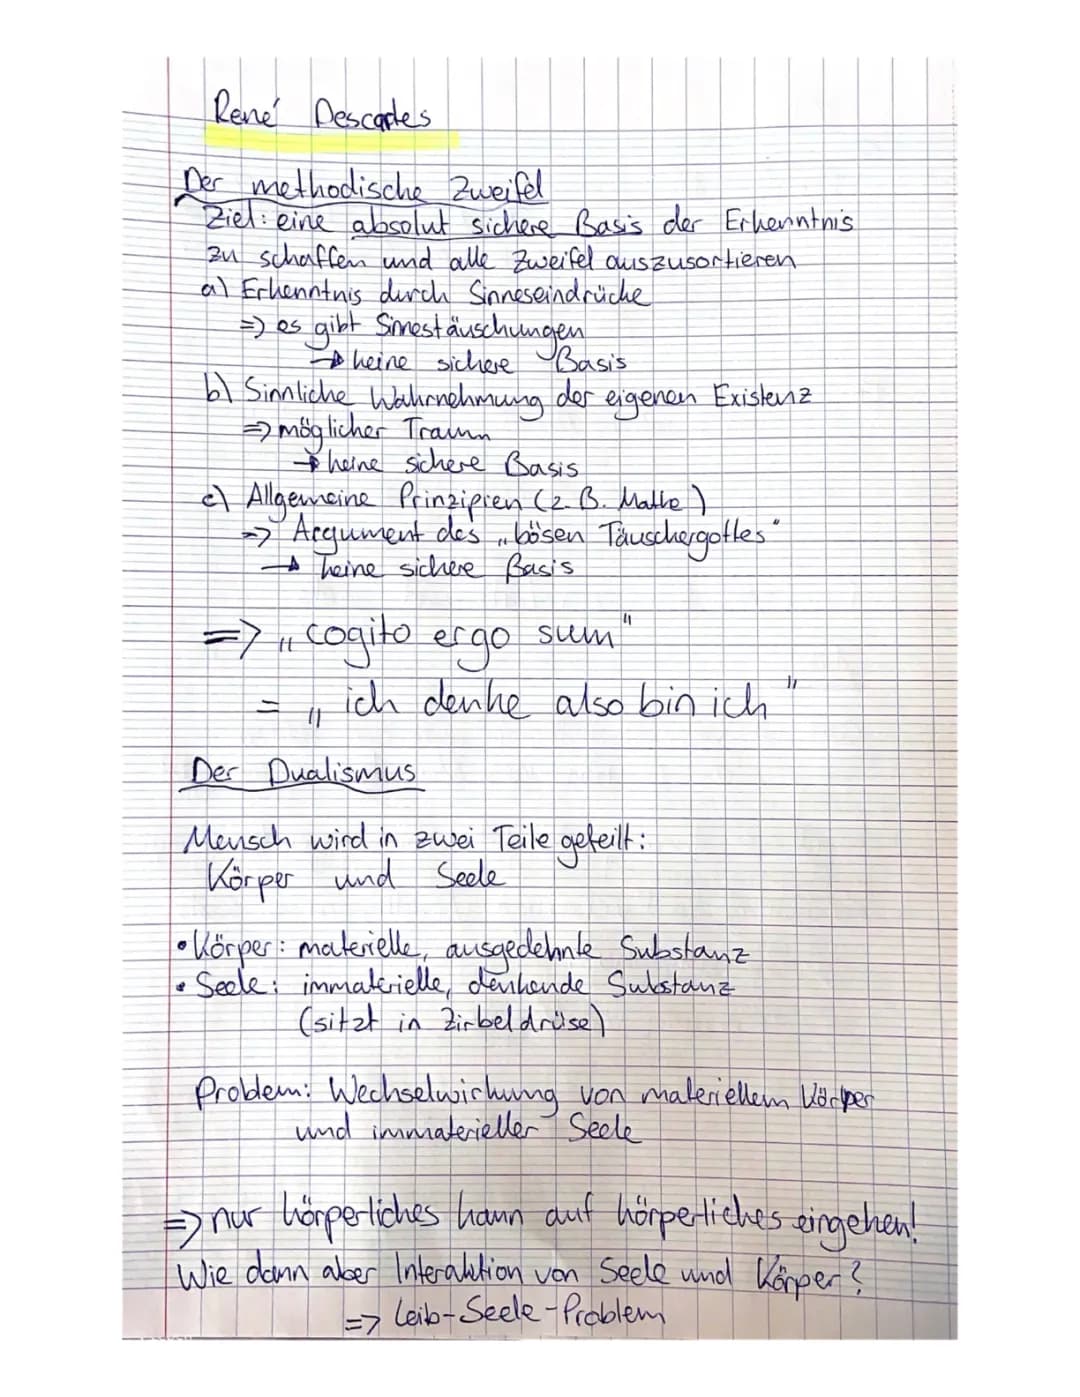 René Descartes
Der methodische Zweifel
Ziel: eine absolut sichere Basis der Erkenntnis
zu schaffen und alle Zweifel auszusortieren
a) Erkenntnis durch Sinneseindrücke
=> es gibt Sinnestäuschungen
→ keine sichere Basis
b) Sinnliche Wahrnehmung der eigenen Existenz
=> möglicher Traum
→ keine sichere Basis
c) Allgemeine Prinzipien (z.B. Mathe)
=> Argument des „bösen Täuschergottes"
→ keine sichere Basis
=> „cogito ergo sum"
= „ich denke also bin ich"
Der Dualismus
Mensch wird in zwei Teile geteilt:
Körper und Seele
• Körper: materielle, ausgedehnte Substanz
• Seele: immaterielle, denkende Substanz
(sitzt in Zirbeldrüse)
Problem: Wechselwirkung von materiellem Körper
und immaterieller Seele
=> nur körperliches kann auf körperliches eingehen!
Wie dann aber Interaktion von Seele und Körper?
=> Leib-Seele-Problem